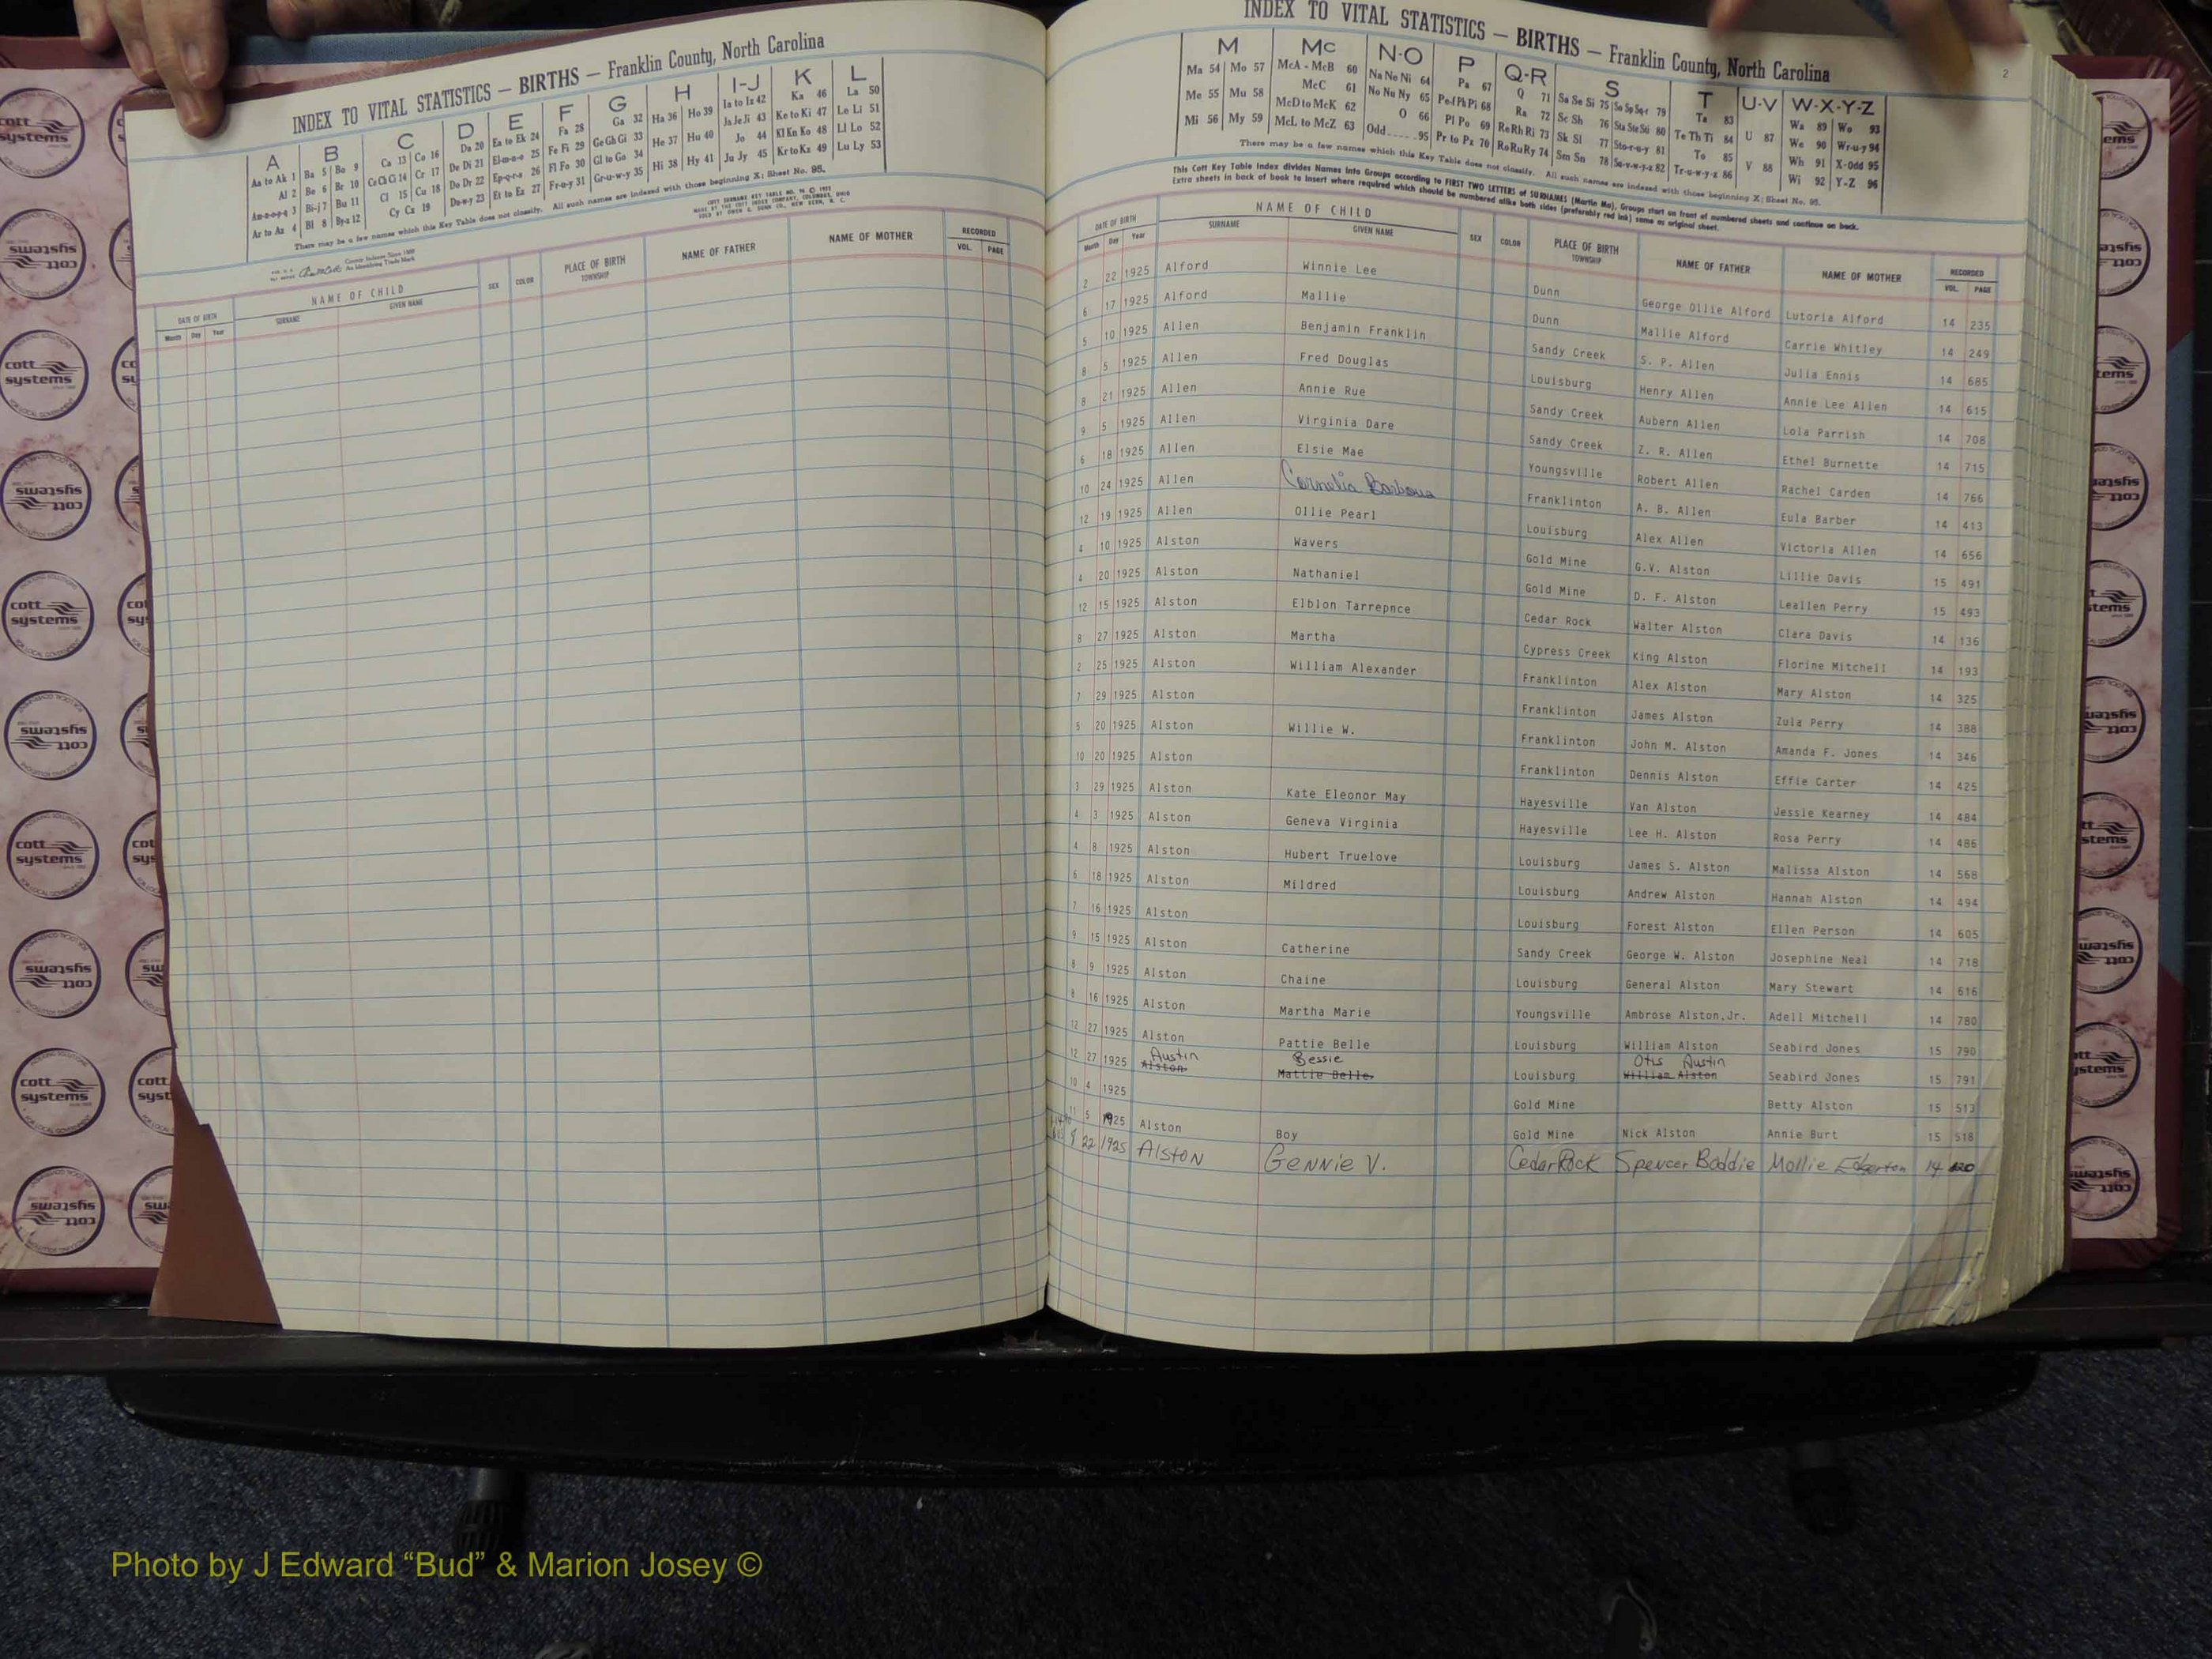 INDEX TO VITAL STATISTICS — BIRTHS — Franklin County, North Carolina
A B C D E F G H I-J K L
Aa to Ak 1 Ba 5 Bo 9 Ca 13 Co 16 Da 20 Ea to Ek 24 Fa 28 Ga 32 Ha 36 Ho 39 Ia to Iz 42 Ka 46 La 50
Al 2 Be 6 Br 10 Ce Ch Ci 14 Cr 17 De Di 21 El-m-n-o 25 Fe Fi 29 Ge Gh Gi 33 He 37 Hu 40 Ja Je Ji 43 Ke to Ki 47 Le Li 51
Am-n-o-p-q 3 Bi-j 7 Bu 11 Cl 15 Cu 18 Do Dr 22 Ep-q-r-s 26 Fl Fo 30 Gl to Go 34 Hi 38 Hy 41 Jo 44 Kl Kn Ko 48 Ll Lo 52
Ar to Az 4 Bl 8 By-z 12 Cy Cz 19 Du-w-y 23 Et to Ez 27 Fr-u-y 31 Gr-u-w-y 35 Ju Jy 45 Kr to Kz 49 Lu Ly 53
There may be a few names which this Key Table does not classify. All such names are indexed with those beginning X; Sheet No. 95.
DATE OF BIRTH NAME OF CHILD SEX COLOR PLACE OF BIRTH NAME OF FATHER NAME OF MOTHER RECORDED
Month Day Year SURNAME GIVEN NAME TOWNSHIP VOL. PAGE
INDEX TO VITAL STATISTICS — BIRTHS — Franklin County, North Carolina 2
M Mc N-O P Q-R S T U-V W-X-Y-Z
Ma 54 Mo 57 McA - McB 60 Na Ne Ni 64 Pa 67 Q 71 Sa Se Si 75 Se Sp Sq-r 79 Ta 83 Wa 89 Wo 93
Me 55 Mu 58 McC 61 No Nu Ny 65 Pe-f Ph Pi 68 Ra 72 Sc Sh 76 Sta Ste Sti 80 Te Th Ti 84 U 87 We 90 Wr-u-y 94
Mi 56 My 59 McD to McK 62 O 66 Pl Po 69 Re Rh Ri 73 Sk Sl 77 Sto-r-u-y 81 To 85 V 88 Wh 91 X-Odd 95
McL to McZ 63 Odd 95 Pr to Pz 70 Ro Ru Ry 74 Sm Sn 78 Su-v-w-y-z 82 Tr-u-w-y-z 86 Wi 92 Y-Z 96
There may be a few names which this Key Table does not classify. All such names are indexed with those beginning X; Sheet No. 95.
This Cott Key Table Index divides Names into Groups according to FIRST TWO LETTERS of SURNAMES (Martin Ma), Groups start on front of numbered sheets and continue on back.
Extra sheets in back of book to insert where required which should be numbered alike both sides (preferably red ink) same as original sheet.
DATE OF BIRTH NAME OF CHILD SEX COLOR PLACE OF BIRTH NAME OF FATHER NAME OF MOTHER RECORDED
Month Day Year SURNAME GIVEN NAME TOWNSHIP VOL. PAGE
2 22 1925 Alford Winnie Lee Dunn George Ollie Alford Lutoria Alford 14 235
6 17 1925 Alford Mallie Dunn Mallie Alford Carrie Whitley 14 249
5 10 1925 Allen Benjamin Franklin Sandy Creek S. P. Allen Julia Ennis 14 685
8 5 1925 Allen Fred Douglas Louisburg Henry Allen Annie Lee Allen 14 615
8 21 1925 Allen Annie Rue Sandy Creek Aubern Allen Lola Parrish 14 708
9 5 1925 Allen Virginia Dare Sandy Creek Z. R. Allen Ethel Burnette 14 715
6 18 1925 Allen Elsie Mae Youngsville Robert Allen Rachel Carden 14 766
10 24 1925 Allen Cornelia Barbour Franklinton A. B. Allen Eula Barber 14 413
12 19 1925 Allen Ollie Pearl Louisburg Alex Allen Victoria Allen 14 656
4 10 1925 Alston Wavers Gold Mine G.V. Alston Lillie Davis 15 491
4 20 1925 Alston Nathaniel Gold Mine D. F. Alston Leallen Perry 15 493
12 15 1925 Alston Elblon Tarrepnce Cedar Rock Walter Alston Clara Davis 14 136
8 27 1925 Alston Martha Cypress Creek King Alston Florine Mitchell 14 193
2 25 1925 Alston William Alexander Franklinton Alex Alston Mary Alston 14 325
7 29 1925 Alston Franklinton James Alston Zula Perry 14 388
5 20 1925 Alston Willie W. Franklinton John M. Alston Amanda F. Jones 14 346
10 20 1925 Alston Franklinton Dennis Alston Effie Carter 14 425
3 29 1925 Alston Kate Eleonor May Hayesville Van Alston Jessie Kearney 14 484
4 3 1925 Alston Geneva Virginia Hayesville Lee H. Alston Rosa Perry 14 486
4 8 1925 Alston Hubert Truelove Louisburg James S. Alston Malissa Alston 14 568
6 18 1925 Alston Mildred Louisburg Andrew Alston Hannah Alston 14 494
7 16 1925 Alston Louisburg Forest Alston Ellen Person 14 605
9 15 1925 Alston Catherine Sandy Creek George W. Alston Josephine Neal 14 718
8 9 1925 Alston Chaine Louisburg General Alston Mary Stewart 14 616
8 16 1925 Alston Martha Marie Youngsville Ambrose Alston,Jr. Adell Mitchell 14 780
12 27 1925 Alston Pattie Belle Louisburg William Alston Seabird Jones 15 790
Austin Bessie Otis Austin
12 27 1925 Alston Mattie Belle Louisburg William Alston Seabird Jones 15 791
10 4 1925 Gold Mine Betty Alston 15 513
11 5 1925 Alston Boy Gold Mine Nick Alston Annie Burt 15 518
9 22 1925 Alston Gennie V. Cedar Rock Spencer Boddie Mollie Edgerton 14 120
cott systems
Photo by J Edward “Bud” & Marion Josey ©